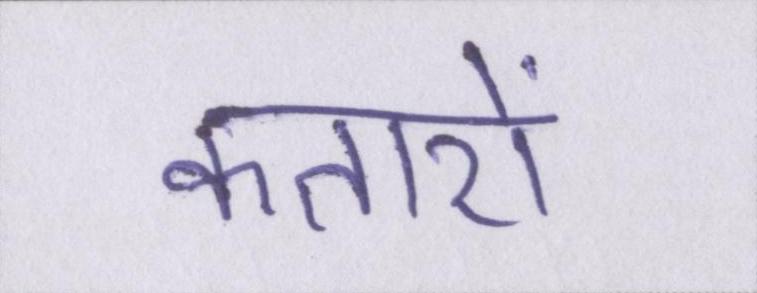 कतारों